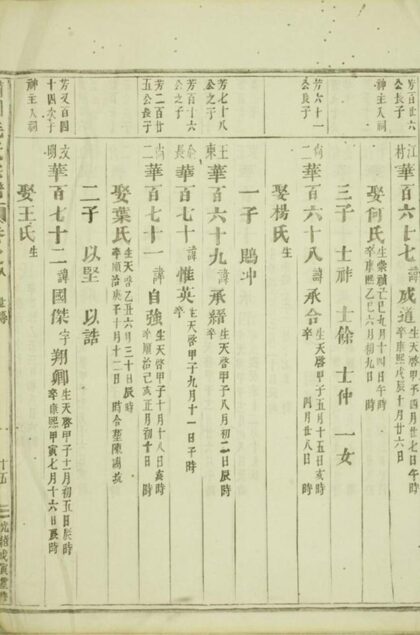 芳百廿六公長子神主入祠
江村 華百六七七 諱成道 生天啓甲子四月廿七日午時 卒康熙戊辰十月廿六日
娶何氏 生崇禎己巳九月十四日午時 卒康熙乙巳六月初九日 時
三子 士祥 士餘 士仲 一女
芳六十一公長子
尚二 華百六十八 諱承合 生天啓甲子五月十五日亥時 卒 四月廿八日 時
娶楊氏 生 卒
一子 賜冲
芳七十八公之子
王東 華百六十九 諱承縉 生天啓甲子八月初二日辰時 卒 時
芳百十六公之子
長 華百七十 諱惟英 生天啓甲子九月十一日子時 卒
芳二百廿五公長子
尚二 華百七十一 諱自強 生天啓甲子十月十八日亥時 卒順治己亥正月初十日 時
娶葉氏 生天啓乙丑六月三十日辰時 卒順治庚子十月十二日 時合墓陳
二子 以堅 以誥
芳又百四十四次子神主入祠
文明 華百七十二 諱國傑 字翔卿 生天啓甲子十二月初五日辰時 卒康熙甲寅七月十六日辰時
娶王氏 生
十五